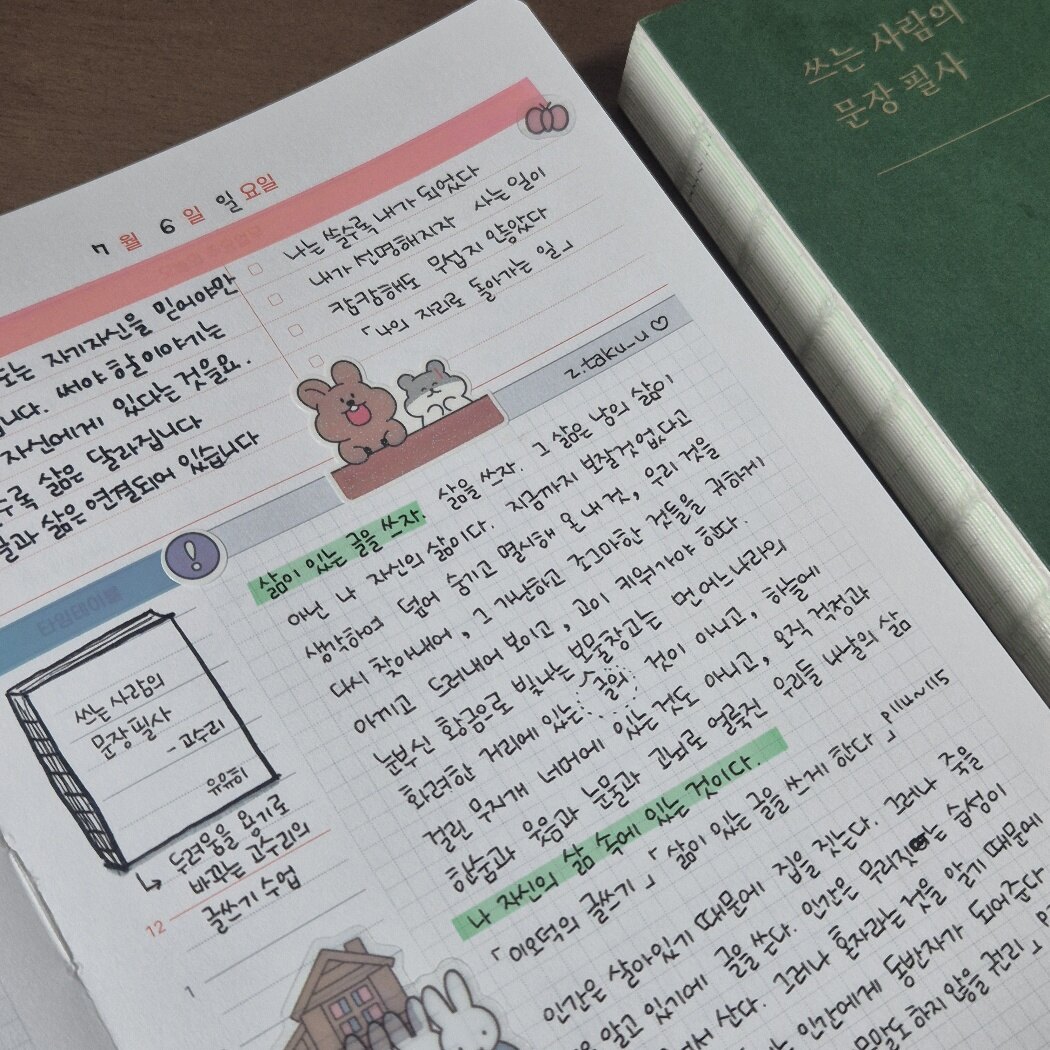 쓰는 사람의
문장 필사
7월 6일 일요일
나는 쓸수록 내가 되었다
내가 선명해지자 사는 일이
캄캄해도 무섭지 않았다
「나의 자리로 돌아가는 일」
자기자신을 믿어야만
니다. 써야 할 이야기는
자신에게 있다는 것을요.
수록 삶은 달라집니다
글과 삶은 연결되어 있습니다
z.taku_u ♡
타임테이블
쓰는 사람의
문장 필사
- 고수리
유유히
두려움을 용기로
바꾸는 고수리의
글쓰기 수업
12
1
삶이 있는 글을 쓰자. 삶을 쓰자. 그 삶은 남의 삶이
아닌 나 자신의 삶이다. 지금까지 보잘것 없다고
생각하여 덮어 숨기고 멸시해 온 내 것, 우리 것을
다시 찾아내어, 그 가난하고 조그마한 것들을 귀하게
아끼고 드러내어 보이고, 고이 키워가야 한다.
눈부신 황금으로 빛나는 보물창고는 먼 어느 나라의
화려한 거리에 있는 글의 것이 아니고, 하늘에
걸린 무지개 너머에 있는 것도 아니고, 오직 걱정과
한숨과 웃음과 눈물과 고뇌로 얼룩진 우리들 나날의 삶
나 자신의 삶 속에 있는 것이다.
「이오덕의 글쓰기」「삶이 있는 글을 쓰게 한다」 p114~115
인간은 살아있기 때문에 집을 짓는다. 그러나 죽을
알고 있기에 글을 쓴다. 인간은 무리짓는 습성이
산다. 그러나 혼자라는 것을 알기 때문에
인간에게 동반자가 되어준다
하지 않을 권리」